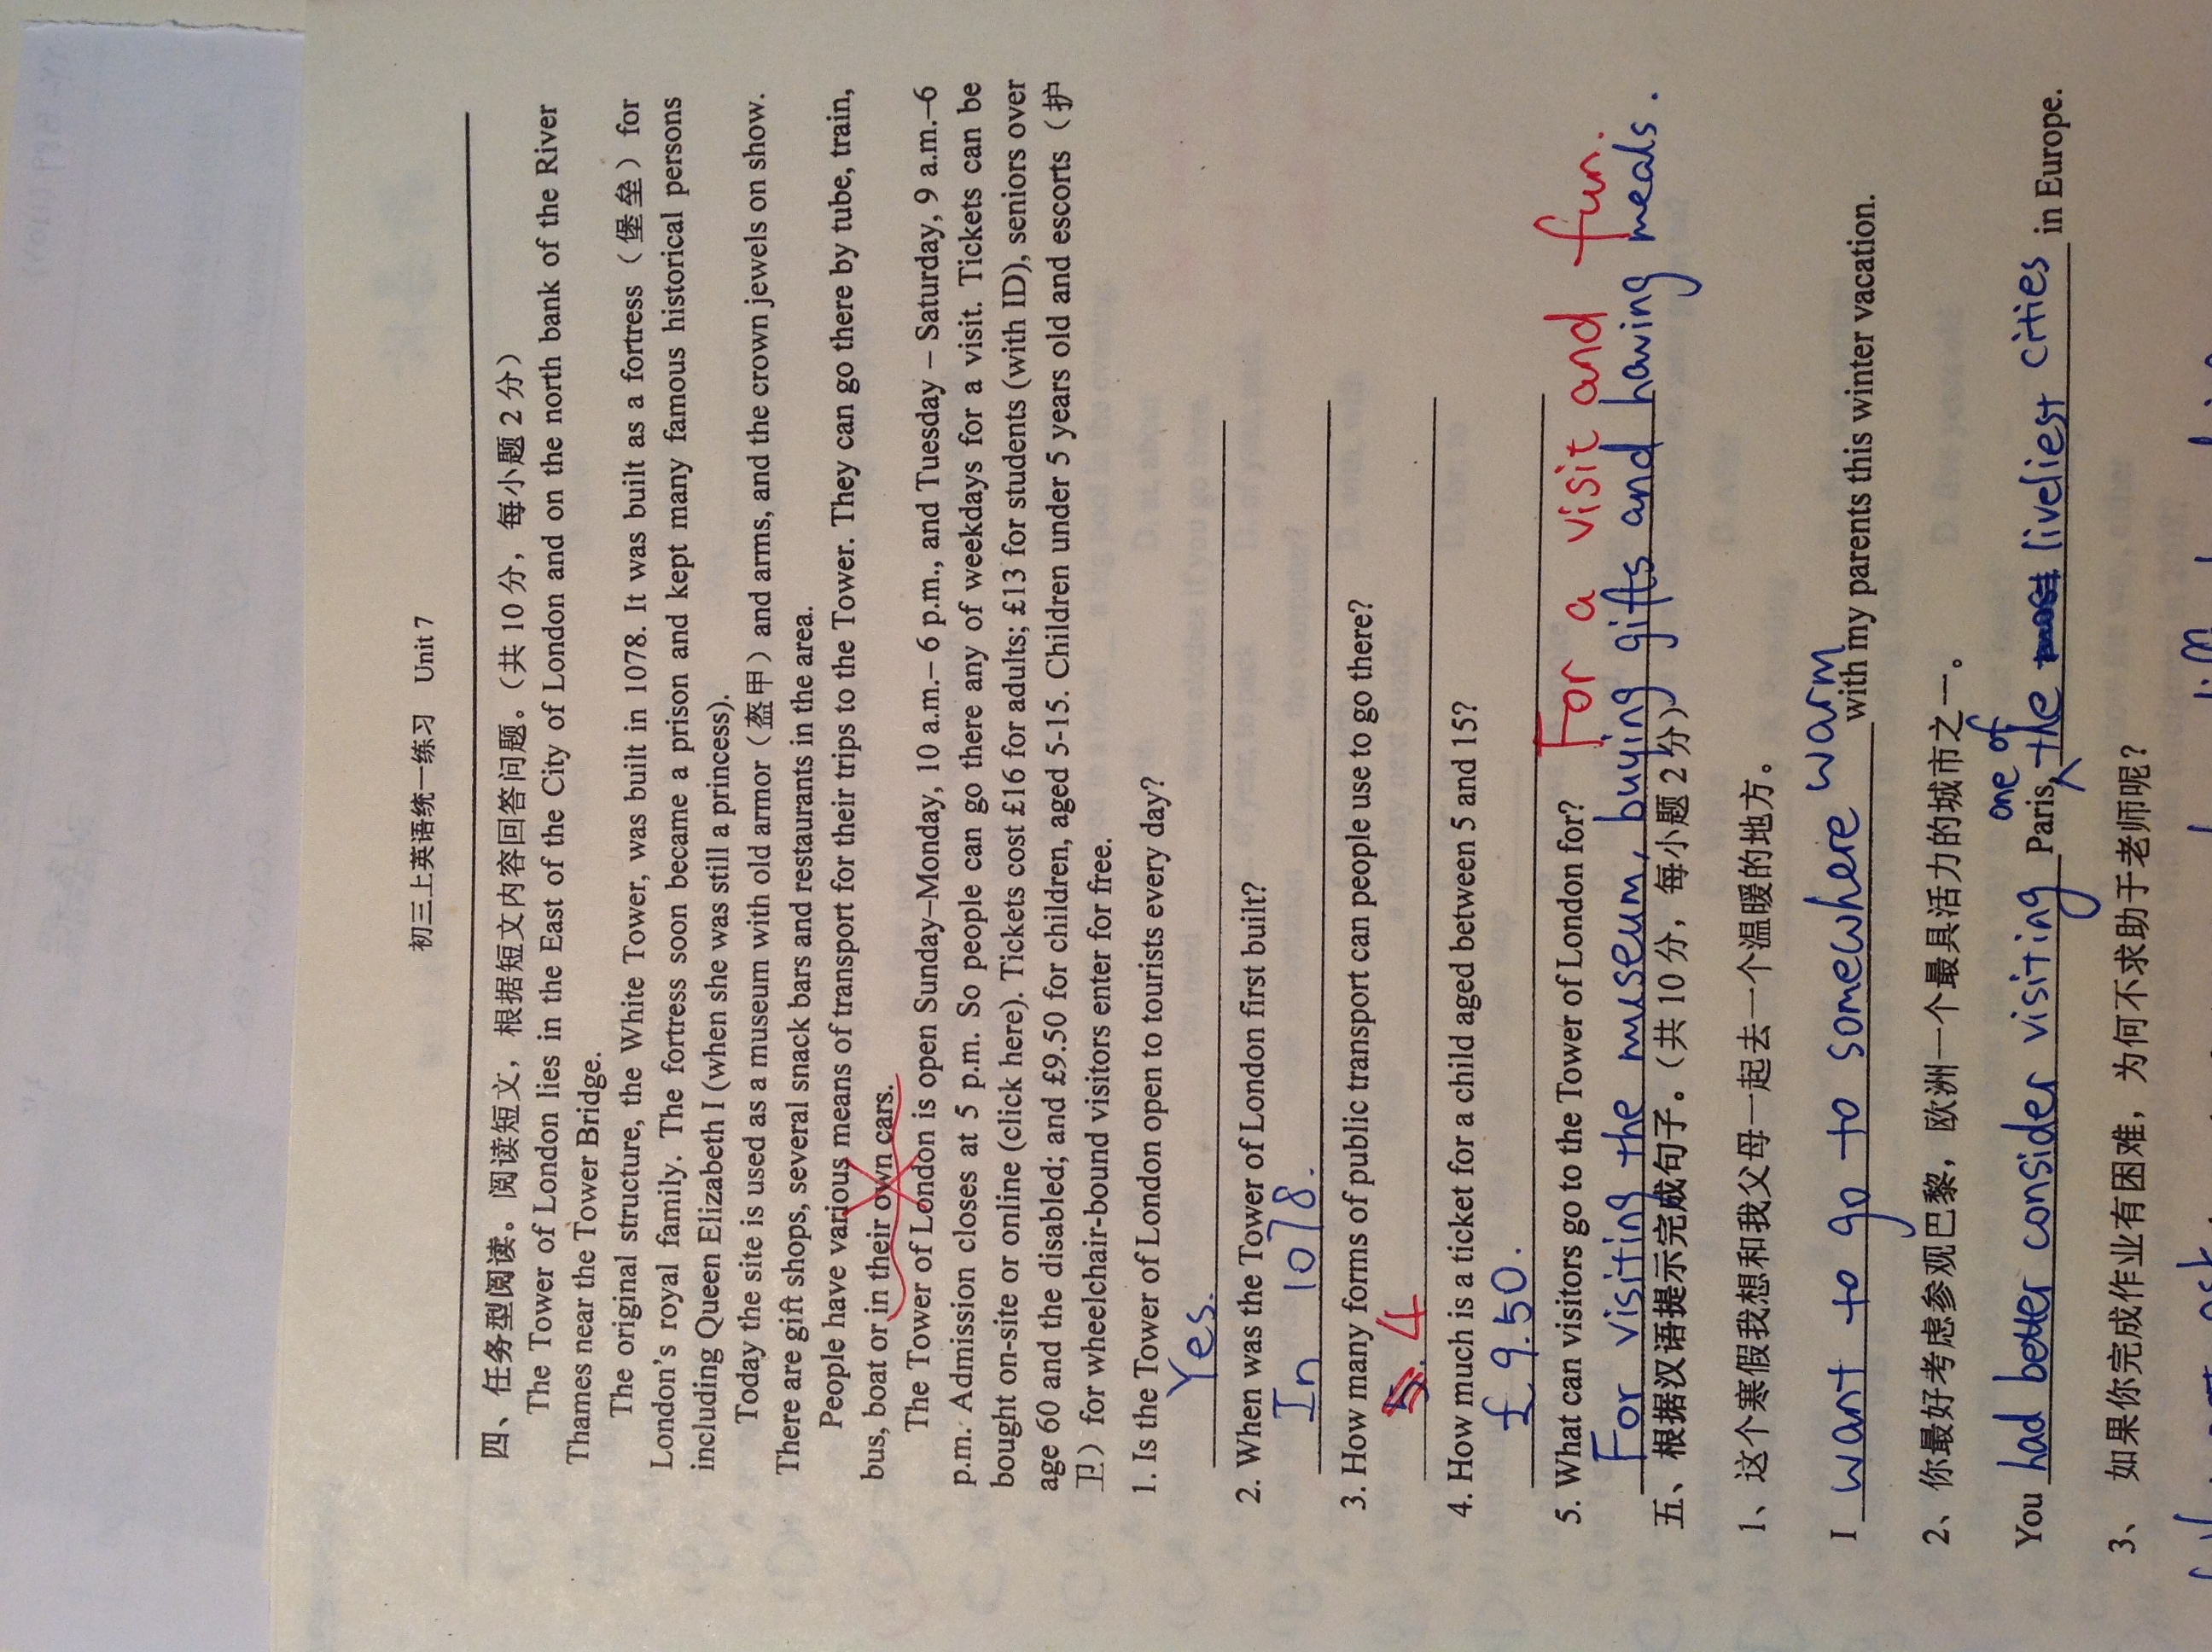 初三上英语统一练习 Unit 7
四、任务型阅读。阅读短文，根据短文内容回答问题。（共 10 分，每小题 2 分）
The Tower of London lies in the East of the City of London and on the north bank of the River
Thames near the Tower Bridge.
The original structure, the White Tower, was built in 1078. It was built as a fortress（堡垒）for
London's royal family. The fortress soon became a prison and kept many famous historical persons
including Queen Elizabeth I (when she was still a princess).
Today the site is used as a museum with old armor（盔甲）and arms, and the crown jewels on show.
There are gift shops, several snack bars and restaurants in the area.
People have various means of transport for their trips to the Tower. They can go there by tube, train,
bus, boat or in their own cars.
The Tower of London is open Sunday–Monday, 10 a.m.– 6 p.m., and Tuesday – Saturday, 9 a.m.–6
p.m. Admission closes at 5 p.m. So people can go there any of weekdays for a visit. Tickets can be
bought on-site or online (click here). Tickets cost £16 for adults; £13 for students (with ID), seniors over
age 60 and the disabled; and £9.50 for children, aged 5-15. Children under 5 years old and escorts（护
卫）for wheelchair-bound visitors enter for free.
1. Is the Tower of London open to tourists every day?
Yes.
2. When was the Tower of London first built?
In 1078.
3. How many forms of public transport can people use to go there?
5. 4
4. How much is a ticket for a child aged between 5 and 15?
£9.50.
5. What can visitors go to the Tower of London for? For a visit and fun.
For visiting the museum, buying gifts and having meals.
五、根据汉语提示完成句子。（共 10 分，每小题 2 分）
1、这个寒假我想和我父母一起去一个温暖的地方。
I want to go to somewhere warm with my parents this winter vacation.
2、你最好考虑参观巴黎，欧洲一个最具活力的城市之一。
You had better consider visiting Paris, one of the most liveliest cities in Europe.
3、 如果你完成作业有困难，为何不求助于老师呢？